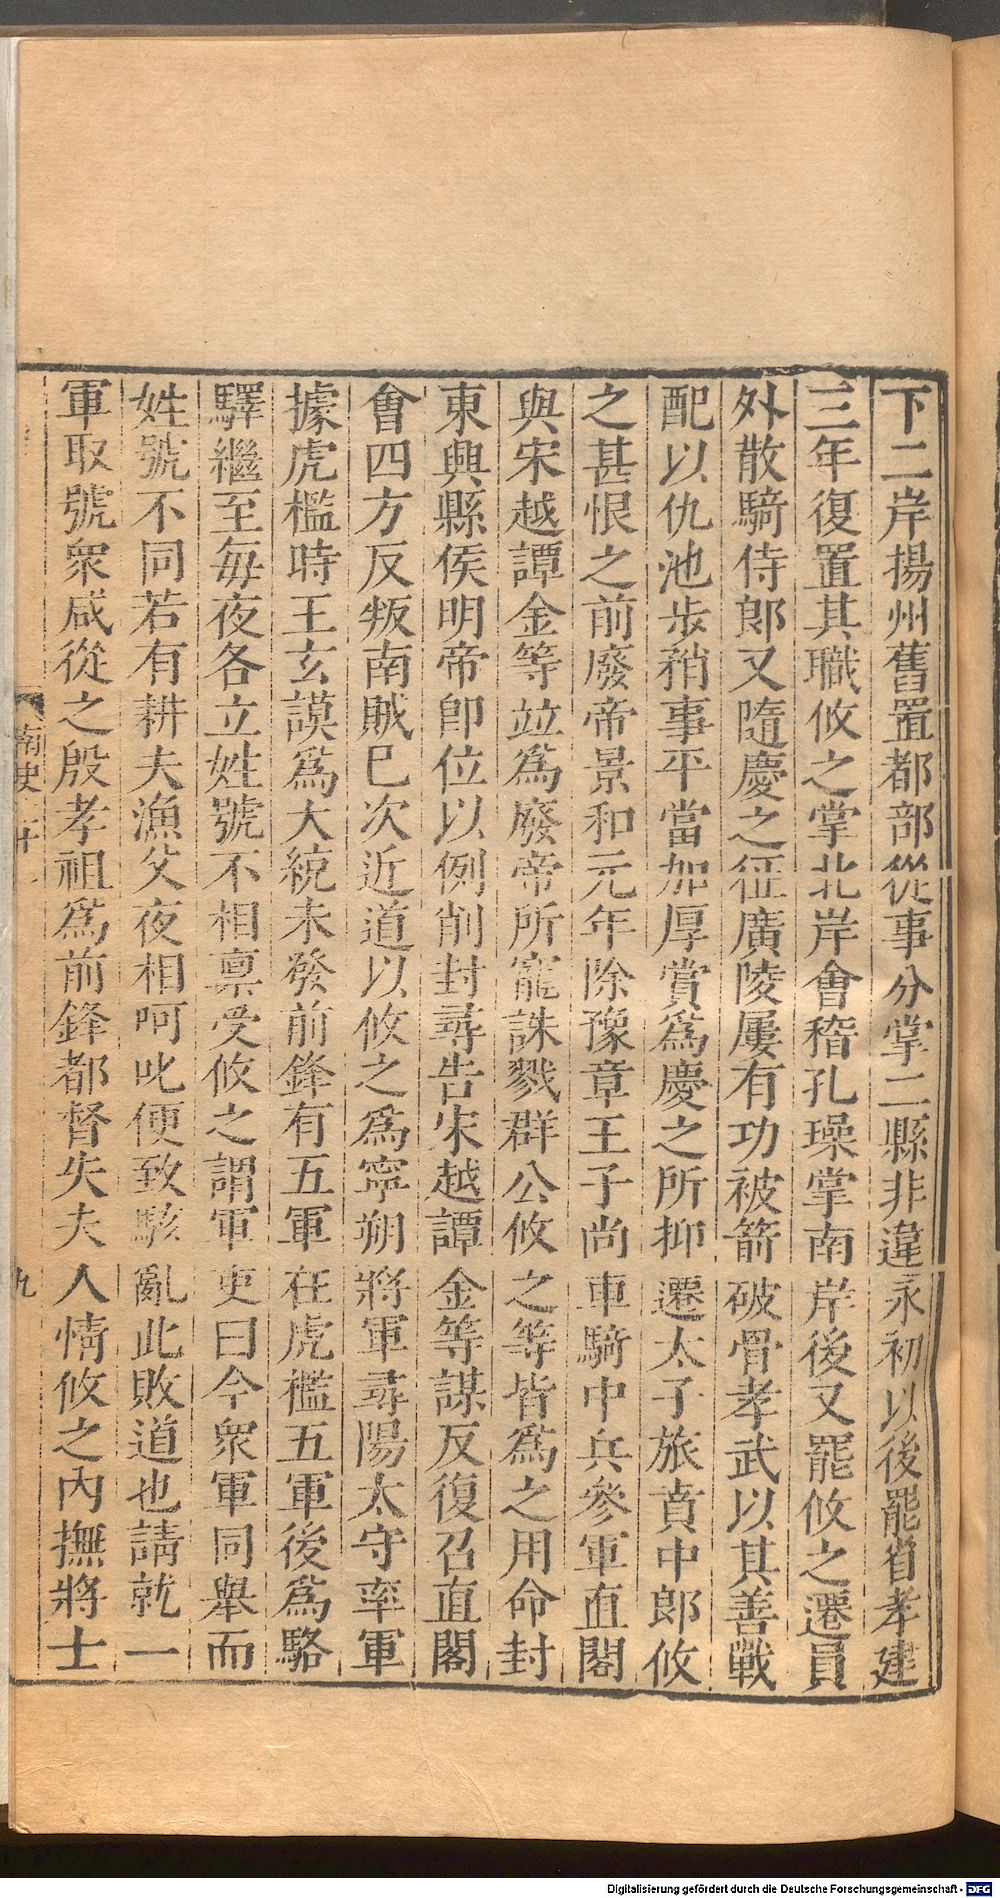 下二岸揚州舊置都部從事分掌二縣非違永初以後罷省孝建
三年復置其職攸之掌北岸會稽孔璪掌南岸後又罷攸之遷員
外散騎侍郎又隨慶之征廣陵屢有功被箭破骨孝武以其善戰
配以仇池步矟事平當加厚賞爲慶之所抑遷太子旅賁中郎攸
之甚恨之前廢帝景和元年除豫章王子尚車騎中兵參軍直閣
與宋越譚金等竝爲廢帝所寵誅戮群公攸之等皆爲之用命封
東興縣侯明帝卽位以例削封尋告宋越譚金等謀反復召直閣
會四方反叛南賊已次近道以攸之爲寧朔將軍尋陽太守率軍
據虎檻時王玄謨爲大統未發前鋒有五軍在虎檻五軍後爲駱
驛繼至每夜各立姓號不相稟受攸之謂軍吏曰今衆軍同舉而
姓號不同若有耕夫漁父夜相呵叱便致駭亂此敗道也請就一
軍取號衆咸從之殷孝祖爲前鋒都督失夫人情攸之內撫將士
南史二十 九
Digitalisierung gefördert durch die Deutsche Forschungsgemeinschaft - DFG